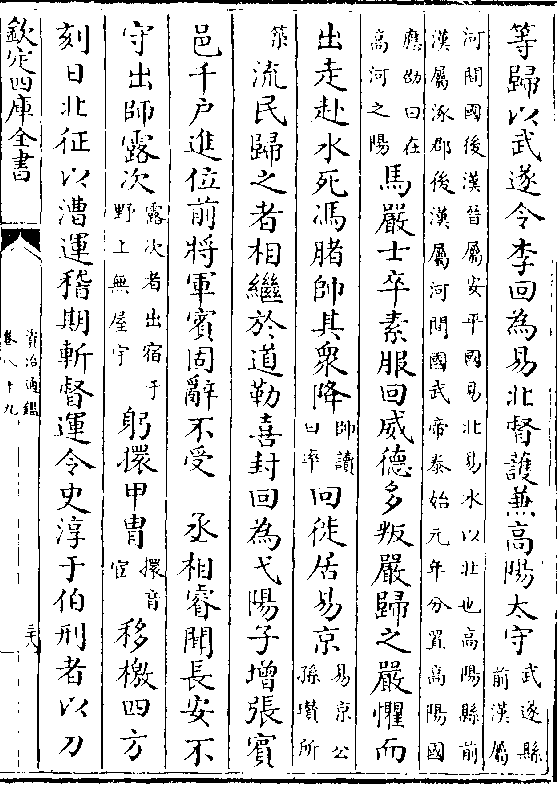 等歸以武遂令李回為易北督護兼高陽太守武遂縣前漢屬
河間國後漢晉屬安平國易北易水以北也高陽縣前漢屬涿郡後漢屬河間國武帝泰始元年分置高陽國
應劭曰在高河之陽馬嚴士卒素服回威德多叛嚴歸之嚴懼而
出走赴水死馮䐗帥其衆降帥讀曰率回徙居易京易京公孫瓚所
築流民歸之者相繼於道勒喜封回為弋陽子增張賓
邑千户進位前將軍賓固辭不受　丞相睿聞長安不
守出師露次露次者出宿于野上無屋宇躬擐甲胄擐音宦移檄四方
刻日北征以漕運稽期斬督運令史淳于伯刑者以刀
欽定四庫全書
資治通鑑
卷八十九